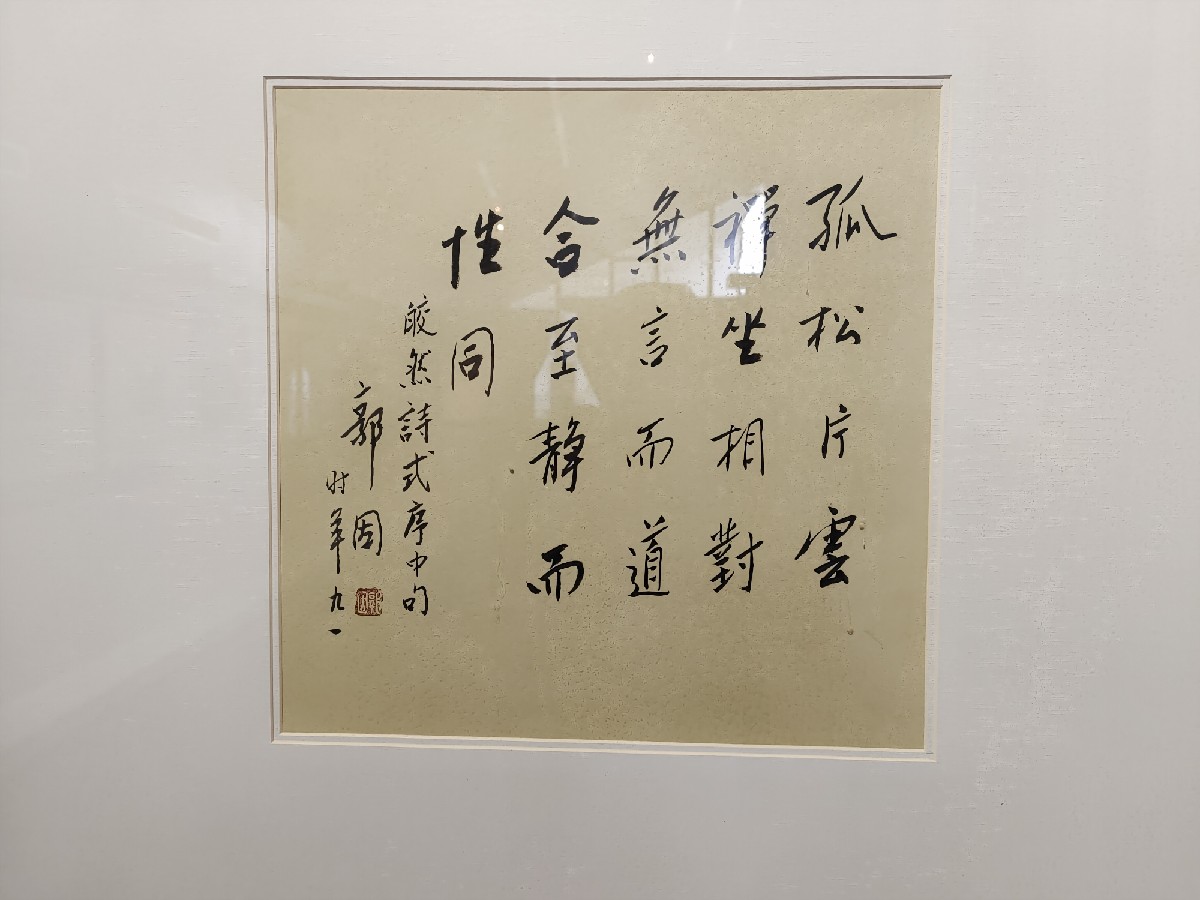 孤松片雲
禪坐相對
無言而道
合至静而
性同
皎然詩式序中句
郭因
时年九一